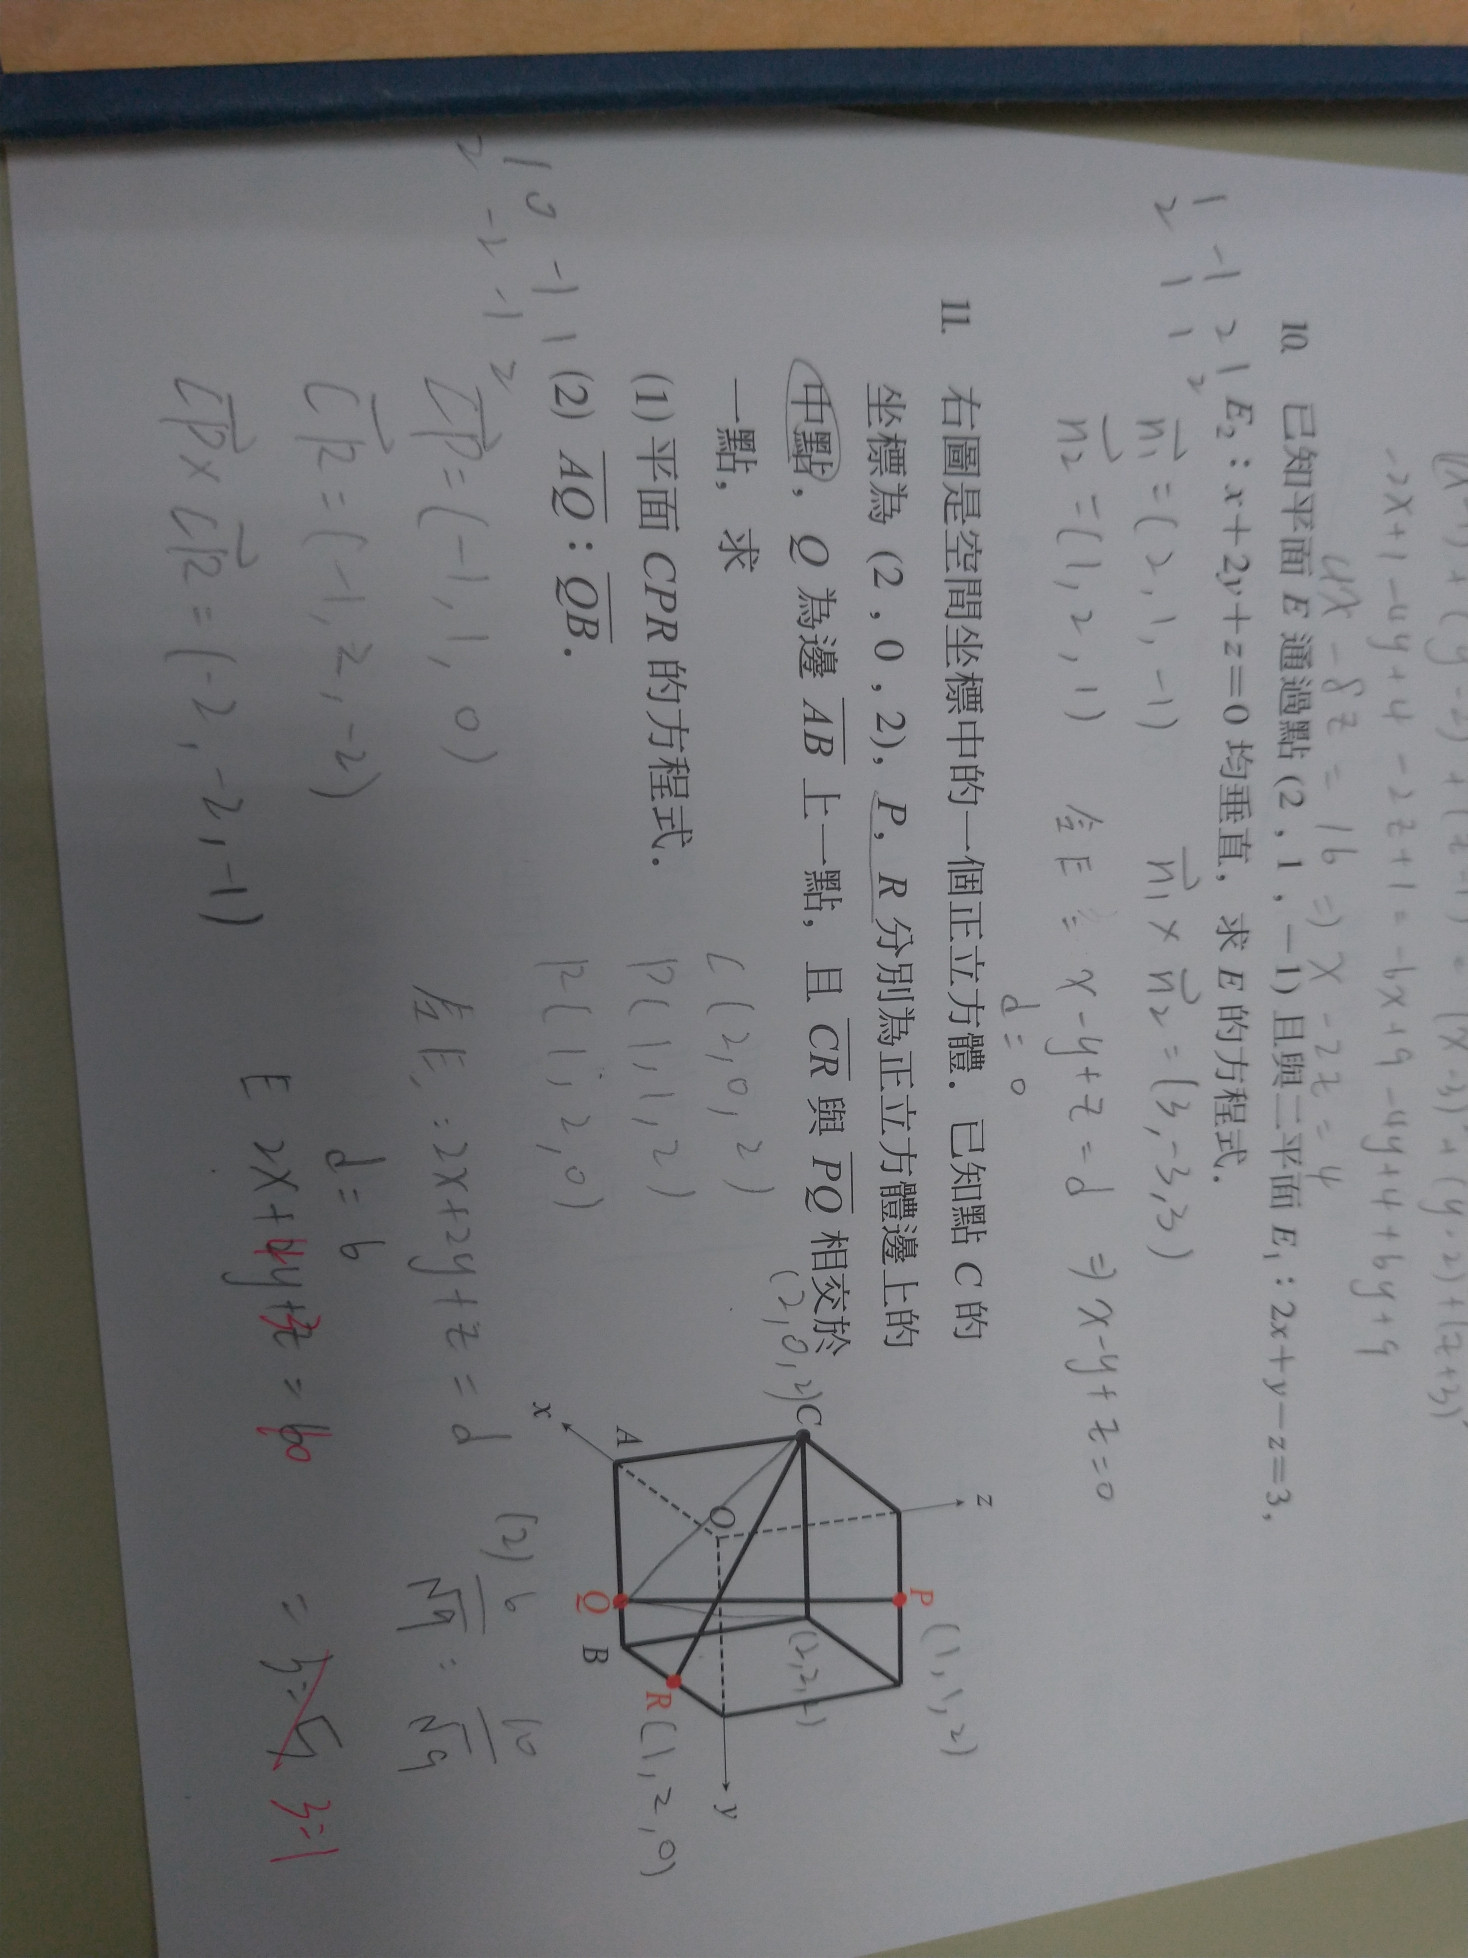 -2x+1-4y+4-2z+1=-6x+9-4y+4+6y+9
4x-8z=16⇒x-2z=4
10. 已知平面 E 通過點(2，1，−1)且與二平面 E₁：2x+y−z=3，
E₂：x+2y+z=0 均垂直，求 E 的方程式．
1 -1 2 1
2 1 1 2
n₁=(2,1,-1) n₁×n₂=(3,-3,3)
n₂=(1,2,1) 令E: x-y+z=d ⇒x-y+z=0
d=0
11. 右圖是空間坐標中的一個正立方體．已知點 C 的
坐標為 (2，0，2)，P，R 分別為正立方體邊上的
中點，Q 為邊 AB 上一點，且 CR 與 PQ 相交於
一點，求
(1) 平面 CPR 的方程式．
(2) AQ：QB．
C(2,0,2)
P(1,1,2)
R(1,2,0)
z
P (1,1,2)
(2,0,2) C
O
y
A
Q
B
R (1,2,0)
x
1 0 -1 1
2 -2 -1 2
CP=(-1,1,0)
CR=(-1,2,-2)
CP×CR=(-2,-2,-1)
令E:2x+2y+z=d
d=6
(2) 6/√9 : 10/√9
=3:5 3:1